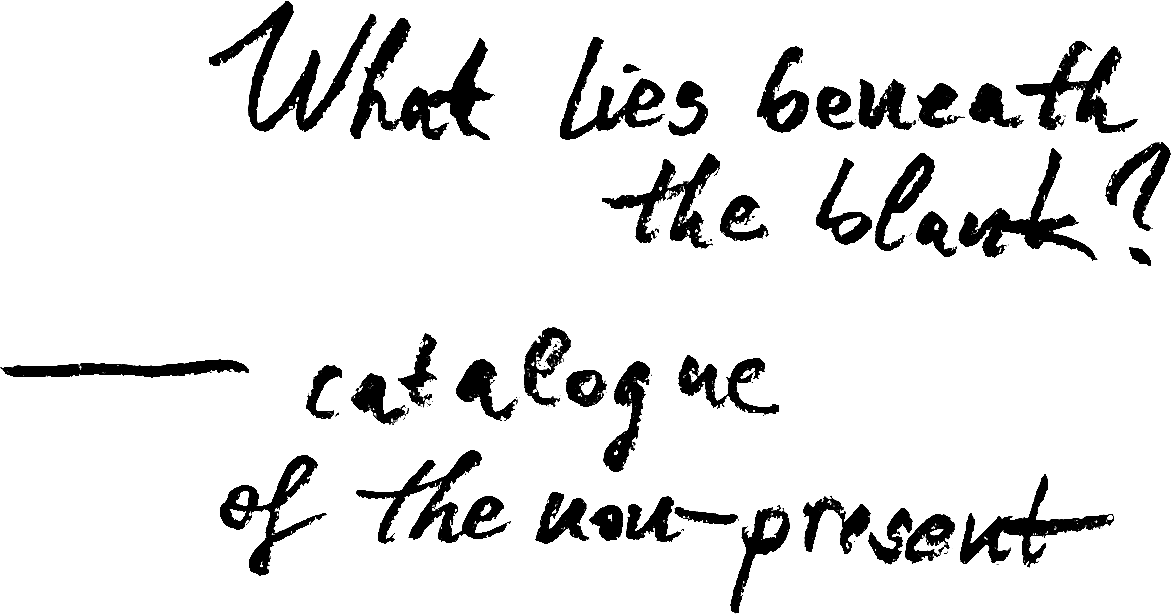 What lies beneath
the blank?
— catalogue
of the non-present